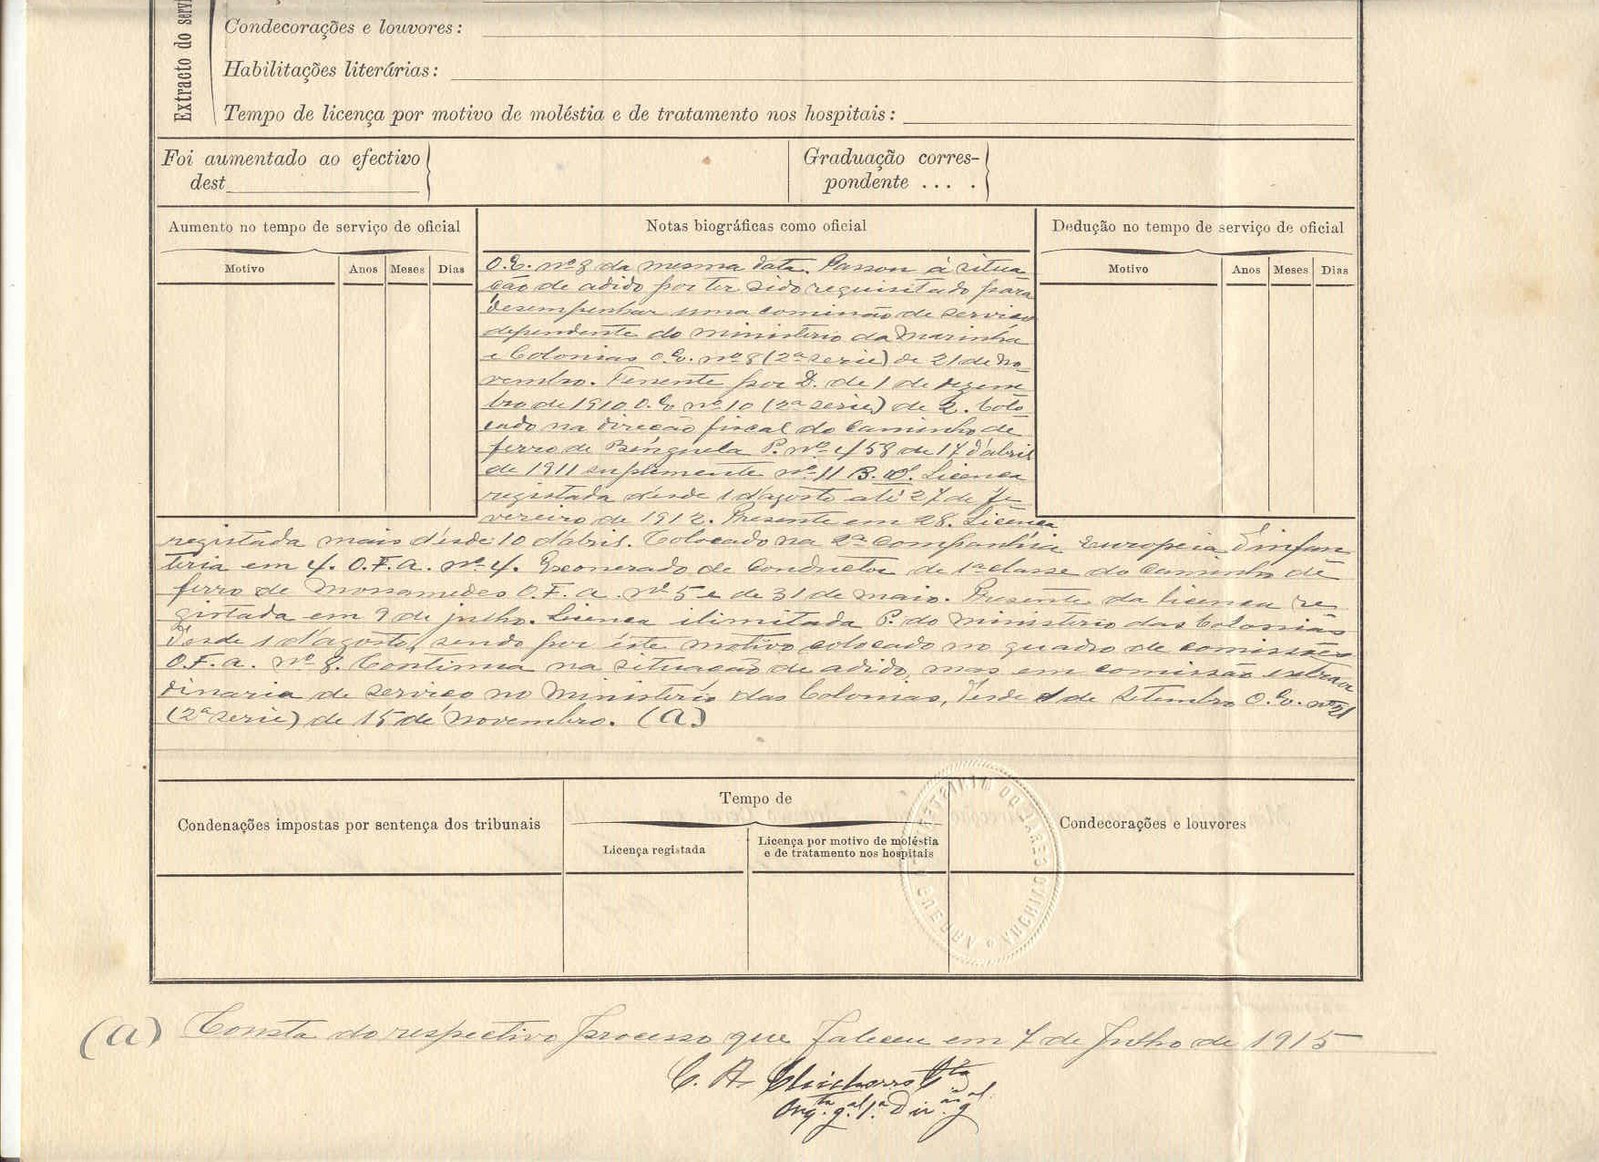 Extracto do servi
Condecorações e louvores:
Habilitações literárias:
Tempo de licença por motivo de moléstia e de tratamento nos hospitais:
Foi aumentado ao efectivo
dest
Graduação corres-
pondente ... .
Aumento no tempo de serviço de oficial
Motivo Anos Meses Dias
Notas biográficas como oficial
Dedução no tempo de serviço de oficial
Motivo Anos Meses Dias
O.E. nº 8 da mesma data. Passou á situa
ção de adido por ter sido requisitado para
desempenhar uma comissão de serviço
dependente do ministerio da Marinha
e Colonias O.E. nº 8 (2ª serie) de 21 de no-
vembro. Tenente por D. de 1 de dezem
bro de 1910 O.E. nº 10 (2ª serie) de 2. Colo
cado na direcão fiscal do Caminho de
ferro de Benguela P. nº 458 de 17 d'abril
de 1911 suplemento nº 11 B. O. Licença
registada desde 1 d'agosto até 27 de fe-
vereiro de 1912. Presente em 28. Licença
registada mais desde 10 d'abril. Colocado na 2ª companhia europeia d'infan
teria em 4. O.F.A. nº 4. Exonerado de conductor de 1ª classe do Caminho de
ferro de Mossamedes O.F.A. nº 5 e de 31 de maio. Presente da licença re
gistada em 9 de julho. Licença ilimitada P. do ministerio das Colonias
desde 1 d'agosto, sendo por este motivo colocado no quadro de comissões
O.F.A. nº 8. Continua na situação de adido, mas em comissão extraor
dinaria de serviço no Ministerio das Colonias, desde 1 de Setembro O.E. nº 21
(2ª serie) de 15 de novembro. (a)
Condenações impostas por sentença dos tribunais
Tempo de
Licença registada
Licença por motivo de moléstia
e de tratamento nos hospitais
Condecorações e louvores
(a) Consta do respectivo processo que faleceu em 7 de Julho de 1915
C. A.